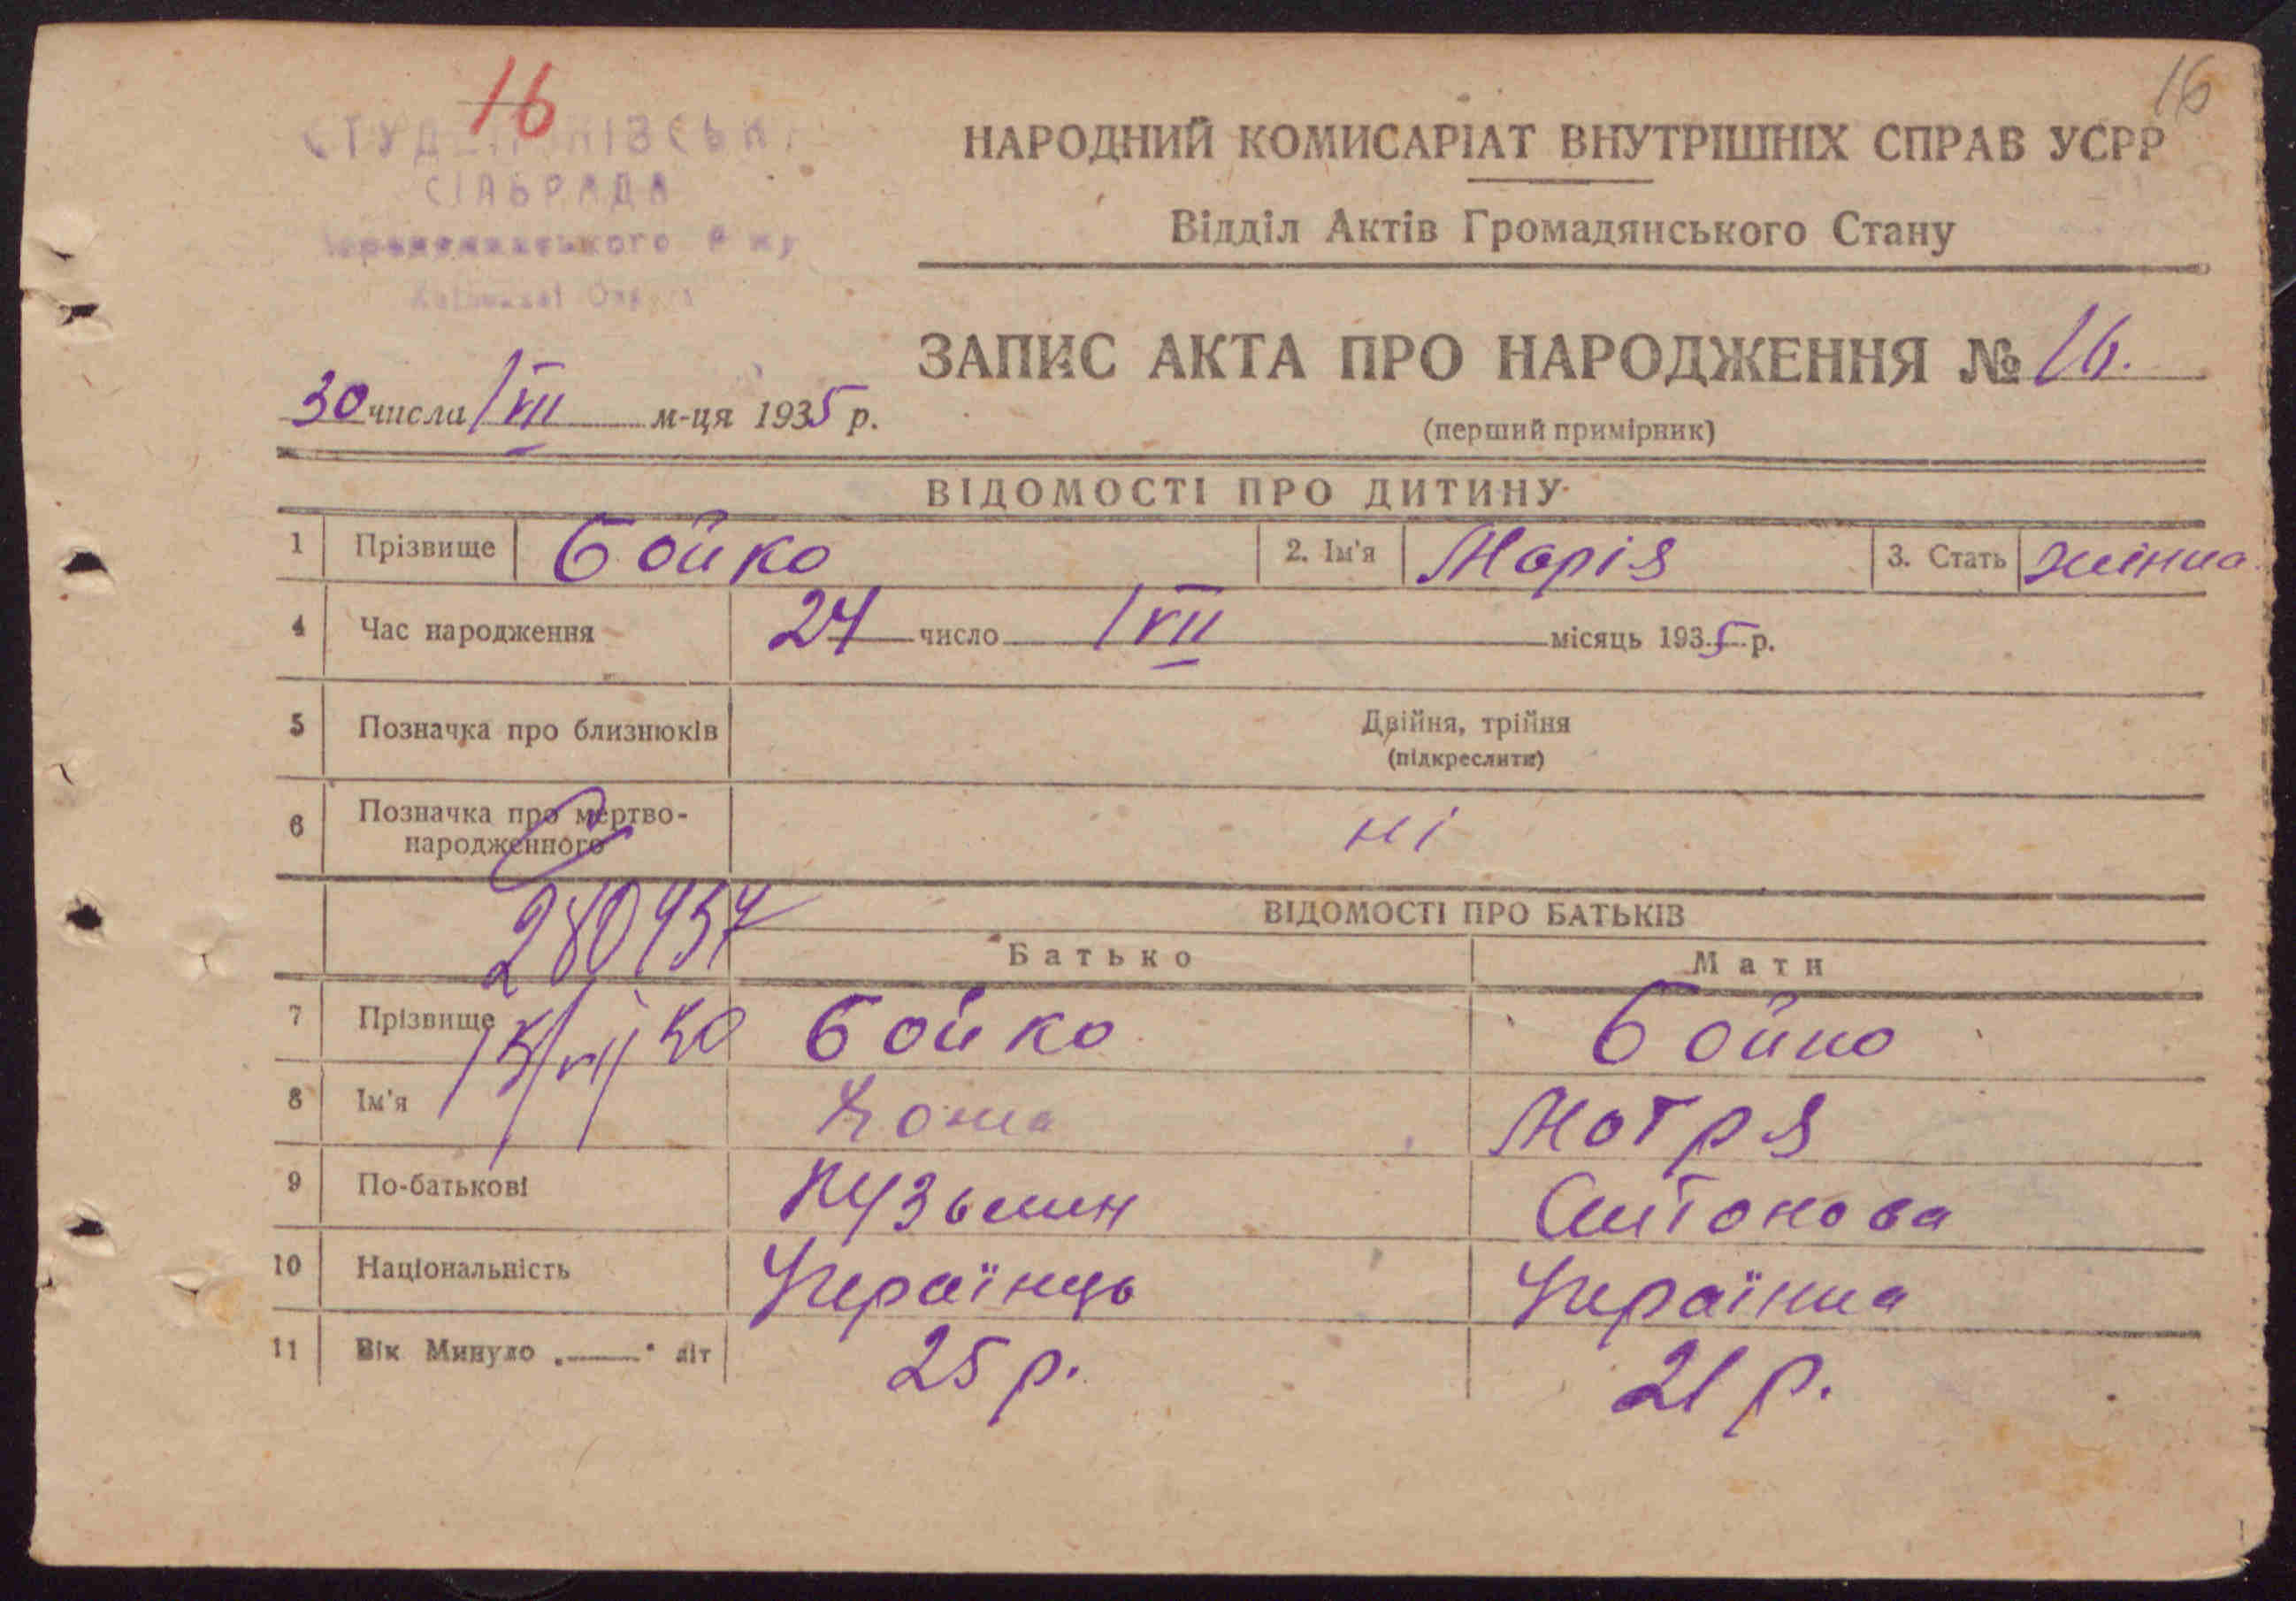 16
16
СІЛЬРАДА
НАРОДНИЙ КОМИСАРІАТ ВНУТРІШНІХ СПРАВ УСРР
Відділ Актів Громадянського Стану
ЗАПИС АКТА ПРО НАРОДЖЕННЯ № 16.
30 числа VII м-ця 1935 р.
(перший примірник)
ВІДОМОСТІ ПРО ДИТИНУ
1 Прізвище Бойко 2. Ім'я Марія 3. Стать жінка
4 Час народження 24 число VII місяць 1935 р.
5 Позначка про близнюків Двійня, трійня
(підкреслити)
6 Позначка про мертво-
народженного ні
ВІДОМОСТІ ПРО БАТЬКІВ
Батько Мати
7 Прізвище Бойко Бойко
8 Ім'я Хома Мотря
9 По-батькові Кузьмин Антонова
10 Національність Українець Українка
11 Вік Минуло „——" літ 25 р. 21 р.